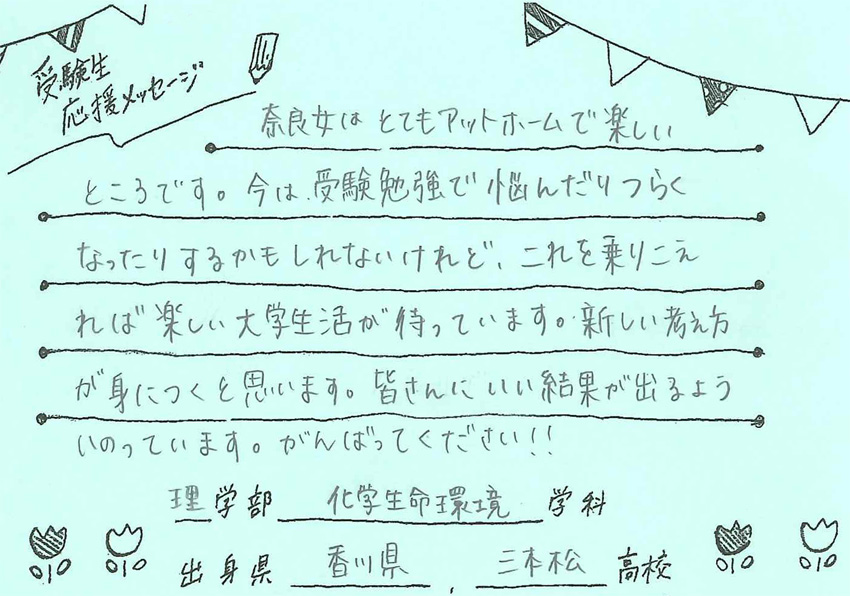 受験生
応援メッセージ
奈良女は とてもアットホームで楽しい
ところです。今は、受験勉強で悩んだりつらく
なったりするかもしれないけれど、これを乗りこえ
れば楽しい大学生活が待っています。新しい考え方
が身につくと思います。皆さんにいい結果が出るよう
いのっています。がんばってください!!
理学部 化学生命環境 学科
出身県 香川県 , 三本松 高校